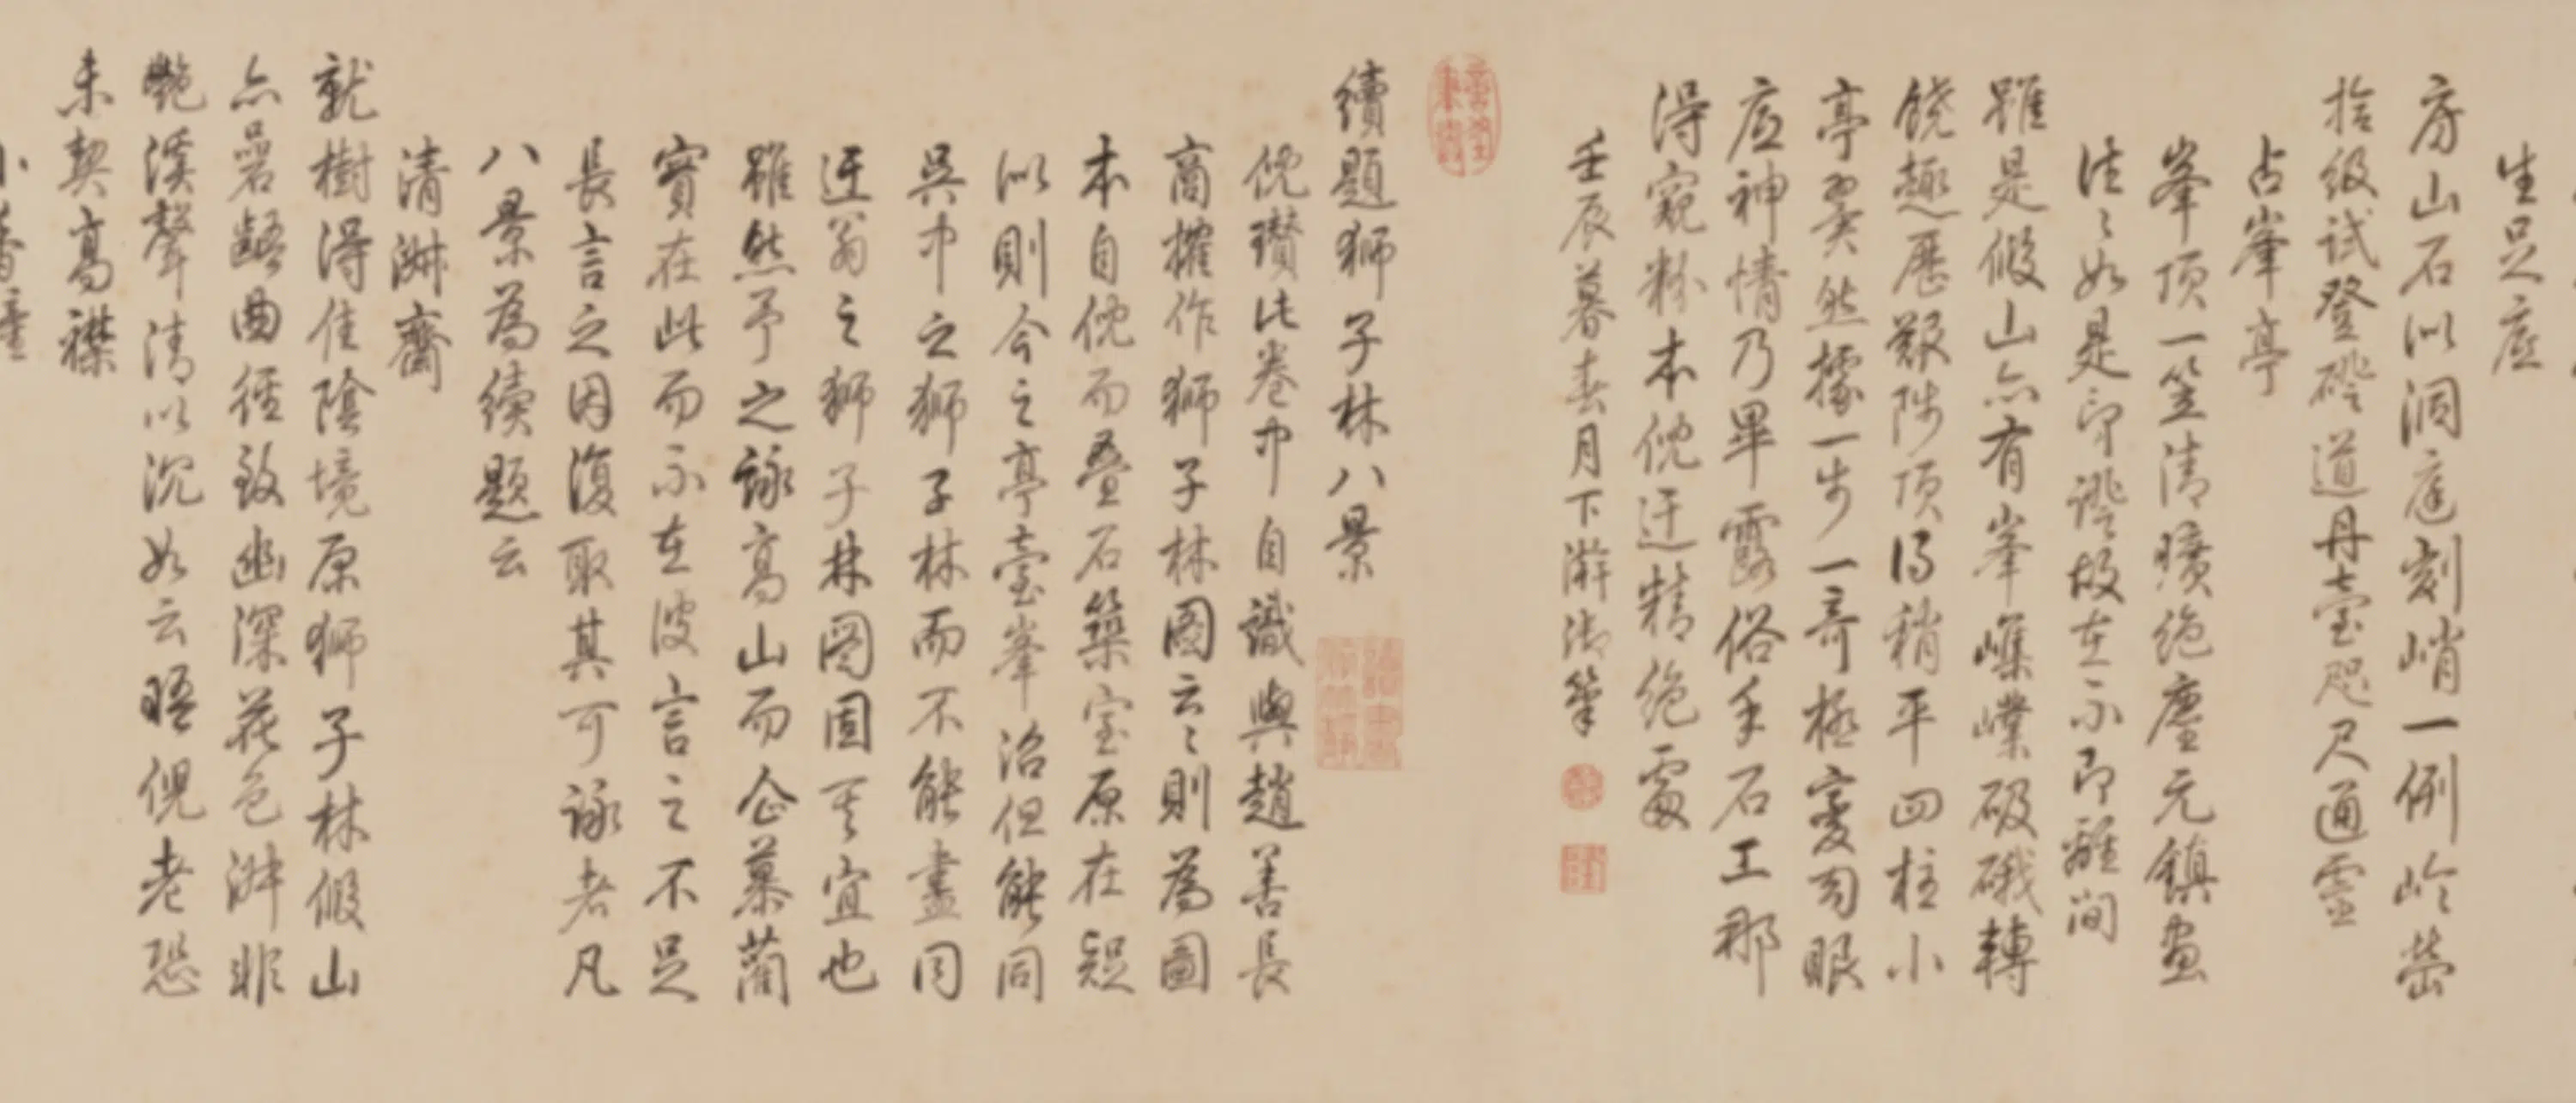 生是庭
房山石似洞庭剜峭一例岭
拾级试登磴道丹臺咫尺通靈
占峯亭
峯顶一笠清曠绝塵元鎮画
法〻如是印證故在不即離间
雖是假山亦有峯嶫嶫硪轉
饒趣歷艱陟顶得稍平四柱小
亭翼然據一步一奇極變司眼
应神情乃畢露俗手石工那
得窺粉本倪迂精绝處
壬辰暮春月下澣御筆
續題狮子林八景
倪瓚此卷中自識與趙善長
商榷作狮子林圖云〻則為圖
本自倪而叠石築室原在疑
似則今之亭臺峯沼但能同
吳中之狮子林而不能盡同
迂翁之狮子林圖固其宜也
雖然予之詠高山而企慕蔺
實在此而不在彼言之不足
長言之因復取其可詠者凡
八景為續題云
清淋齋
就樹得佳陰境原狮子林假山
亦礐䜿曲徑致幽深花色淋非
艷溪聲清以沉如云晤倪老恐
未契高襟
小香幢